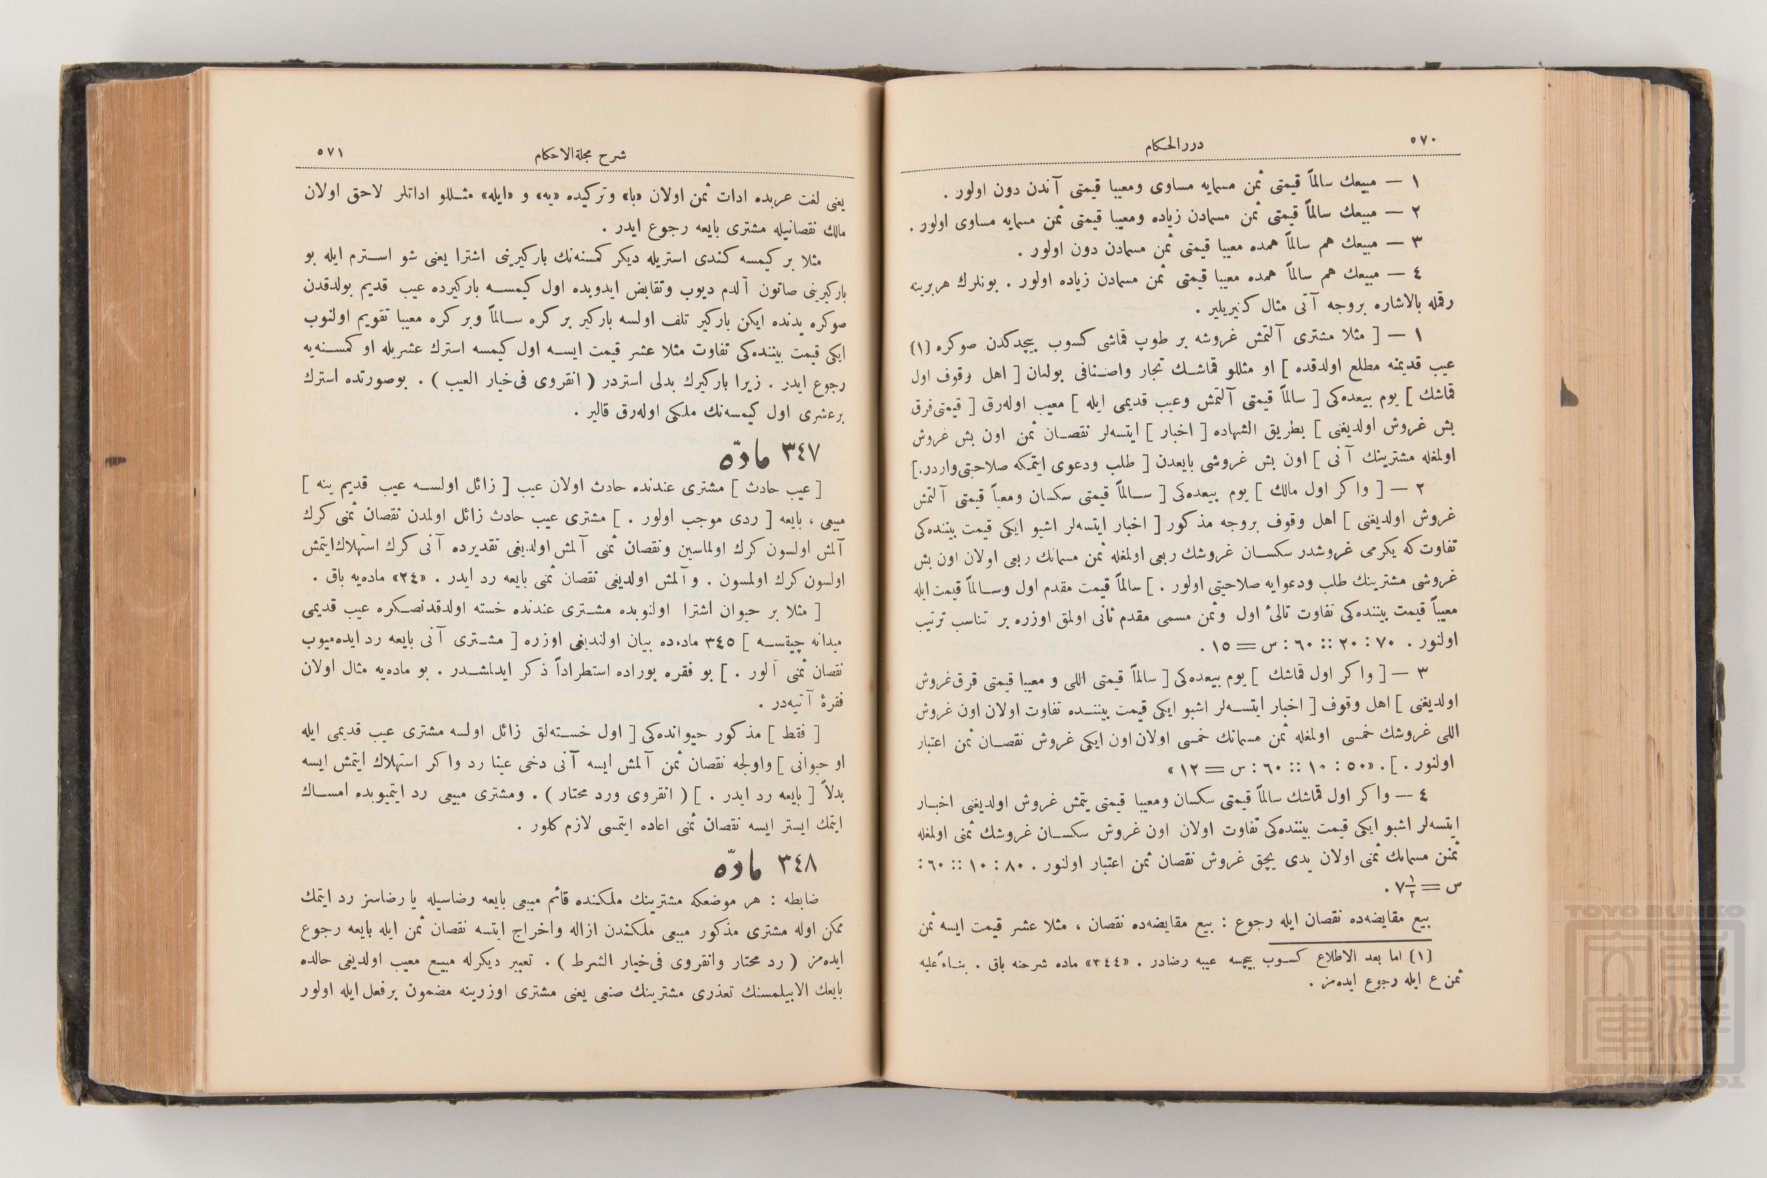 ٥٧٠
دررالحكام
١ — مبيعك سالماً قيمتى ثمن مسمايه مساوى ومعيبا قيمتى آندن دون اولور .
٢ — مبيعك سالماً قيمتى ثمن مسمادن زياده ومعيبا قيمتى ثمن مسمايه مساوى اولور .
٣ — مبيعك هم سالماً همده معيبا قيمتى ثمن مسمادن دون اولور .
٤ — مبيعك هم سالماً همده معيبا قيمتى ثمن مسمادن زياده اولور . بونلرك هربرينه
رقمله بالاشاره بروجه آتى مثال كتيريلير .
١ — [ مثلا مشترى آلتمش غروشه بر طوپ قماشى كسوب بيچدكدن صوكره (١)
عيب قديمنه مطلع اولدقده ] او مثللو قماشك تجار واصنافى بولنان [ اهل وقوف اول
قماشك ] يوم بيعده‌كى [ سالماً قيمتى آلتمش وعيب قديمى ايله ] معيب اوله‌رق [ قيمتى فرق
بش غروش اولديغنى ] بطريق الشهاده [ اخبار ] ايتسه‌لر نقصان ثمن اون بش غروش
اولمغله مشترينك آنى ] اون بش غروشى بايعدن [ طلب ودعوى ايتمكه صلاحيتى واردر.]
٢ — [ واكر اول مالك ] يوم بيعده‌كى [ سالماً قيمتى سكسان ومعيباً قيمتى آلتمش
غروش اولديغنى ] اهل وقوف بروجه مذكور [ اخبار ايتسه‌لر اشبو ايكى قيمت بيننده‌كى
تفاوت كه يكرمى غروشدر سكسان غروشك ربعى اولمغله ثمن مسمانك ربعى اولان اون بش
غروشى مشترينك طلب ودعوايه صلاحيتى اولور . ] سالماً قيمت مقدم اول وسالماً قيمت ايله
معيباً قيمت بيننده‌كى تفاوت تالئ اول وثمن مسمى مقدم ثانى اولمق اوزره بر تناسب ترتيب
اولنور . ٧٠ : ٢٠ :: ٦٠ : س = ١٥ .
٣ — [ واكر اول قماشك ] يوم بيعده‌كى [ سالماً قيمتى اللى و معيبا قيمتى قرق غروش
اولديغنى ] اهل وقوف [ اخبار ايتسه‌لر اشبو ايكى قيمت بيننده تفاوت اولان اون غروش
اللى غروشك خمسى اولمغله ثمن مسمانك خمسى اولان اون ايكى غروش نقصان ثمن اعتبار
اولنور . ] . «٥٠ : ١٠ :: ٦٠ : س = ١٢»
٤ — واكر اول قماشك سالماً قيمتى سكسان ومعيبا قيمتى يتمش غروش اولديغنى اخبار
ايتسه‌لر اشبو ايكى قيمت بيننده‌كى تفاوت اولان اون غروش سكسان غروشك ثمنى اولمغله
ثمنن مسمانك ثمنى اولان يدى بچق غروش نقصان ثمن اعتبار اولنور . ٨٠ : ١٠ :: ٦٠ :
س = ٧١⁄٢ .
بيع مقايضه‌ده نقصان ايله رجوع : بيع مقايضه‌ده نقصان ، مثلا عشر قيمت ايسه ثمن
(١) اما بعد الاطلاع كسوب بيچسه عيبه رضادر . «٣٤٤» ماده شرحنه باق . بناءً عليه
ثمن ع ايله رجوع ايده‌مز .
شرح مجلةالاحكام
٥٧١
يعنى لغت عربده ادات ثمن اولان «با» وتركيده «يه» و «ايله» مثللو اداتلر لاحق اولان
مالك نقصانيله مشترى بايعه رجوع ايدر .
مثلا بر كيمسه كندى استريله ديكر كمسنه‌نك باركيرينى اشترا يعنى شو استرم ايله بو
باركيرينى صاتون آلدم ديوب وتقابض ايدوبده اول كيمسه باركيرده عيب قديم بولدقدن
صوكره يدنده ايكن باركير تلف اولسه باركير بر كره سالماً وبر كره معيبا تقويم اولنوب
ايكى قيمت بيننده‌كى تفاوت مثلا عشر قيمت ايسه اول كيمسه استرك عشريله او كمسنه‌يه
رجوع ايدر . زيرا باركيرك بدلى استردر ( انقروى فى‌خيار العيب ) . بوصورتده استرك
برعشرى اول كيمسه‌نك ملكى اوله‌رق قالير .
٣٤٧ مادّه
[ عيب حادث ] مشترى عندنده حادث اولان عيب [ زائل اولسه عيب قديم ينه ]
مبيعى ، بايعه [ ردى موجب اولور . ] مشترى عيب حادث زائل اولمدن نقصان ثمنى كرك
آلمش اولسون كرك اولماسين ونقصان ثمنى آلمش اولديغى تقديرده آنى كرك استهلاك‌ايتمش
اولسون كرك اولمسون . و آلمش اولديغى نقصان ثمنى بايعه رد ايدر . «٢٤» ماده‌يه باق .
[ مثلا بر حيوان اشترا اولنوبده مشترى عندنده خسته اولدقدنصكره عيب قديمى
ميدانه چيقسه ] ٣٤٥ ماده‌ده بيان اولنديغى اوزره [ مشترى آنى بايعه رد ايده‌ميوب
نقصان ثمنى آلور . ] بو فقره بوراده استطراداً ذكر ايدلمشدر . بو ماده‌يه مثال اولان
فقرۀ آتيه‌در .
[ فقط ] مذكور حيوانده‌كى [ اول خسته‌لق زائل اولسه مشترى عيب قديمى ايله
او حيوانى ] واولجه نقصان ثمن آلمش ايسه آنى دخى عينا رد واكر استهلاك ايتمش ايسه
بدلاً [ بايعه رد ايدر . ] ( انقروى ورد محتار ) . ومشترى مبيعى رد ايتميوبده امساك
ايتمك ايستر ايسه نقصان ثمنى اعاده ايتمسى لازم كلور .
٣٤٨ مادّه
ضابطه : هر موضعكه مشترينك ملكنده قائم مبيعى بايعه رضاسيله يا رضاسز رد ايتمك
ممكن اوله مشترى مذكور مبيعى ملكندن ازاله واخراج ايتسه نقصان ثمن ايله بايعه رجوع
ايده‌مز ( رد محتار وانقروى فى‌خيار الشرط ) . تعبير ديكرله مبيع معيب اولديغى حالده
بايعك الابيلمسنك تعذرى مشترينك صنعى يعنى مشترى اوزرينه مضمون برفعل ايله اولور
TOYO BUNKO